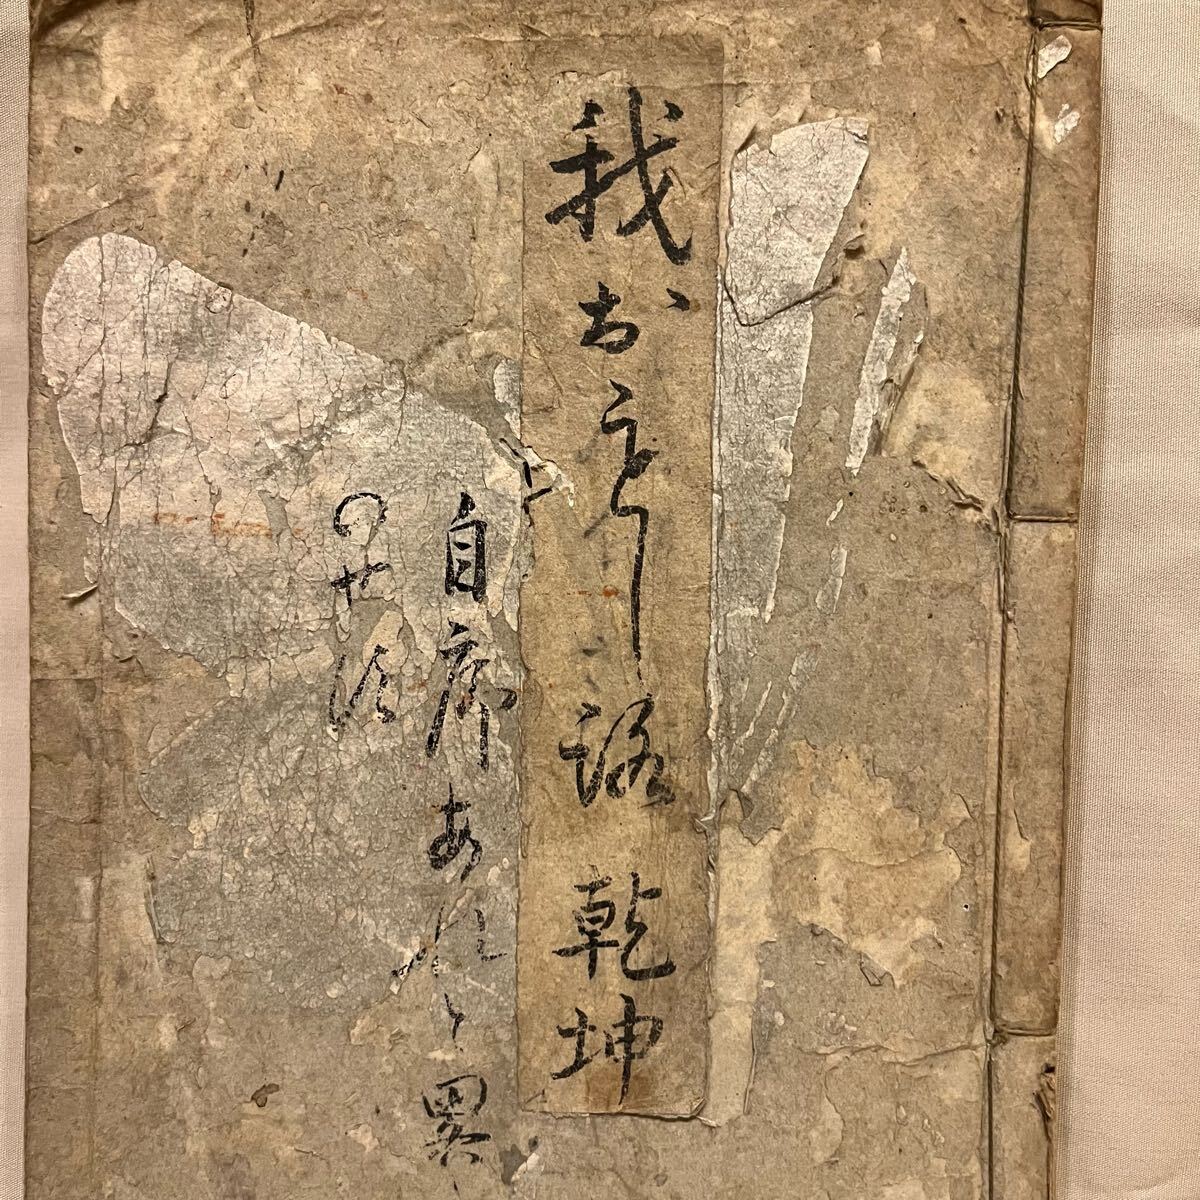 我おもし路 乾坤
自序あれと畧
のせす